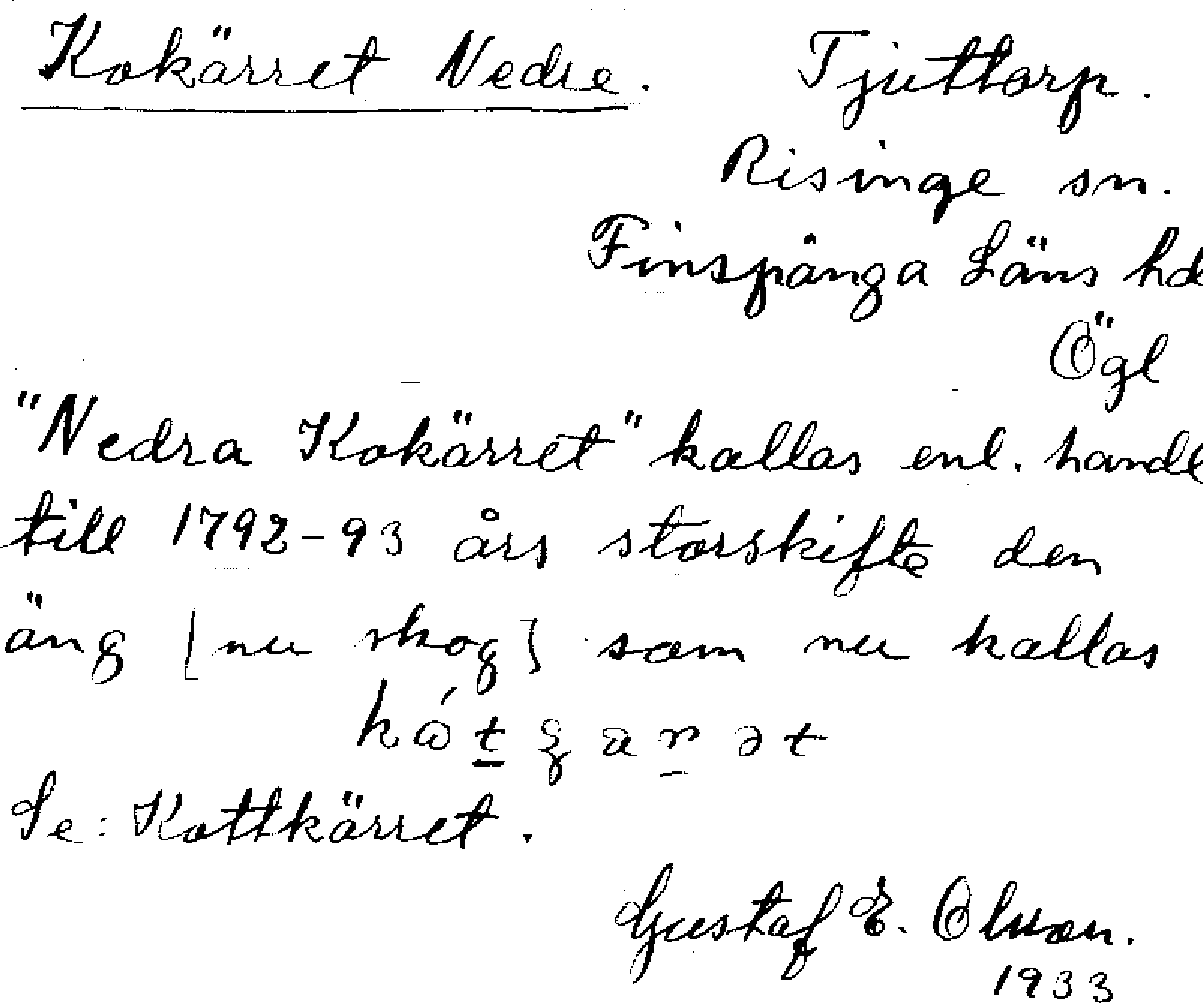 Kokärret Nedre. Tjuttorp.
Risinge sn.
Finspånga Läns hd
Ögl
"Nedra Kokärret" kallas enl. handl
till 1792-93 års storskifte den
äng [nu skog] som nu kallas
Se: Kottkärret.
Gustaf E. Olsson.
1933